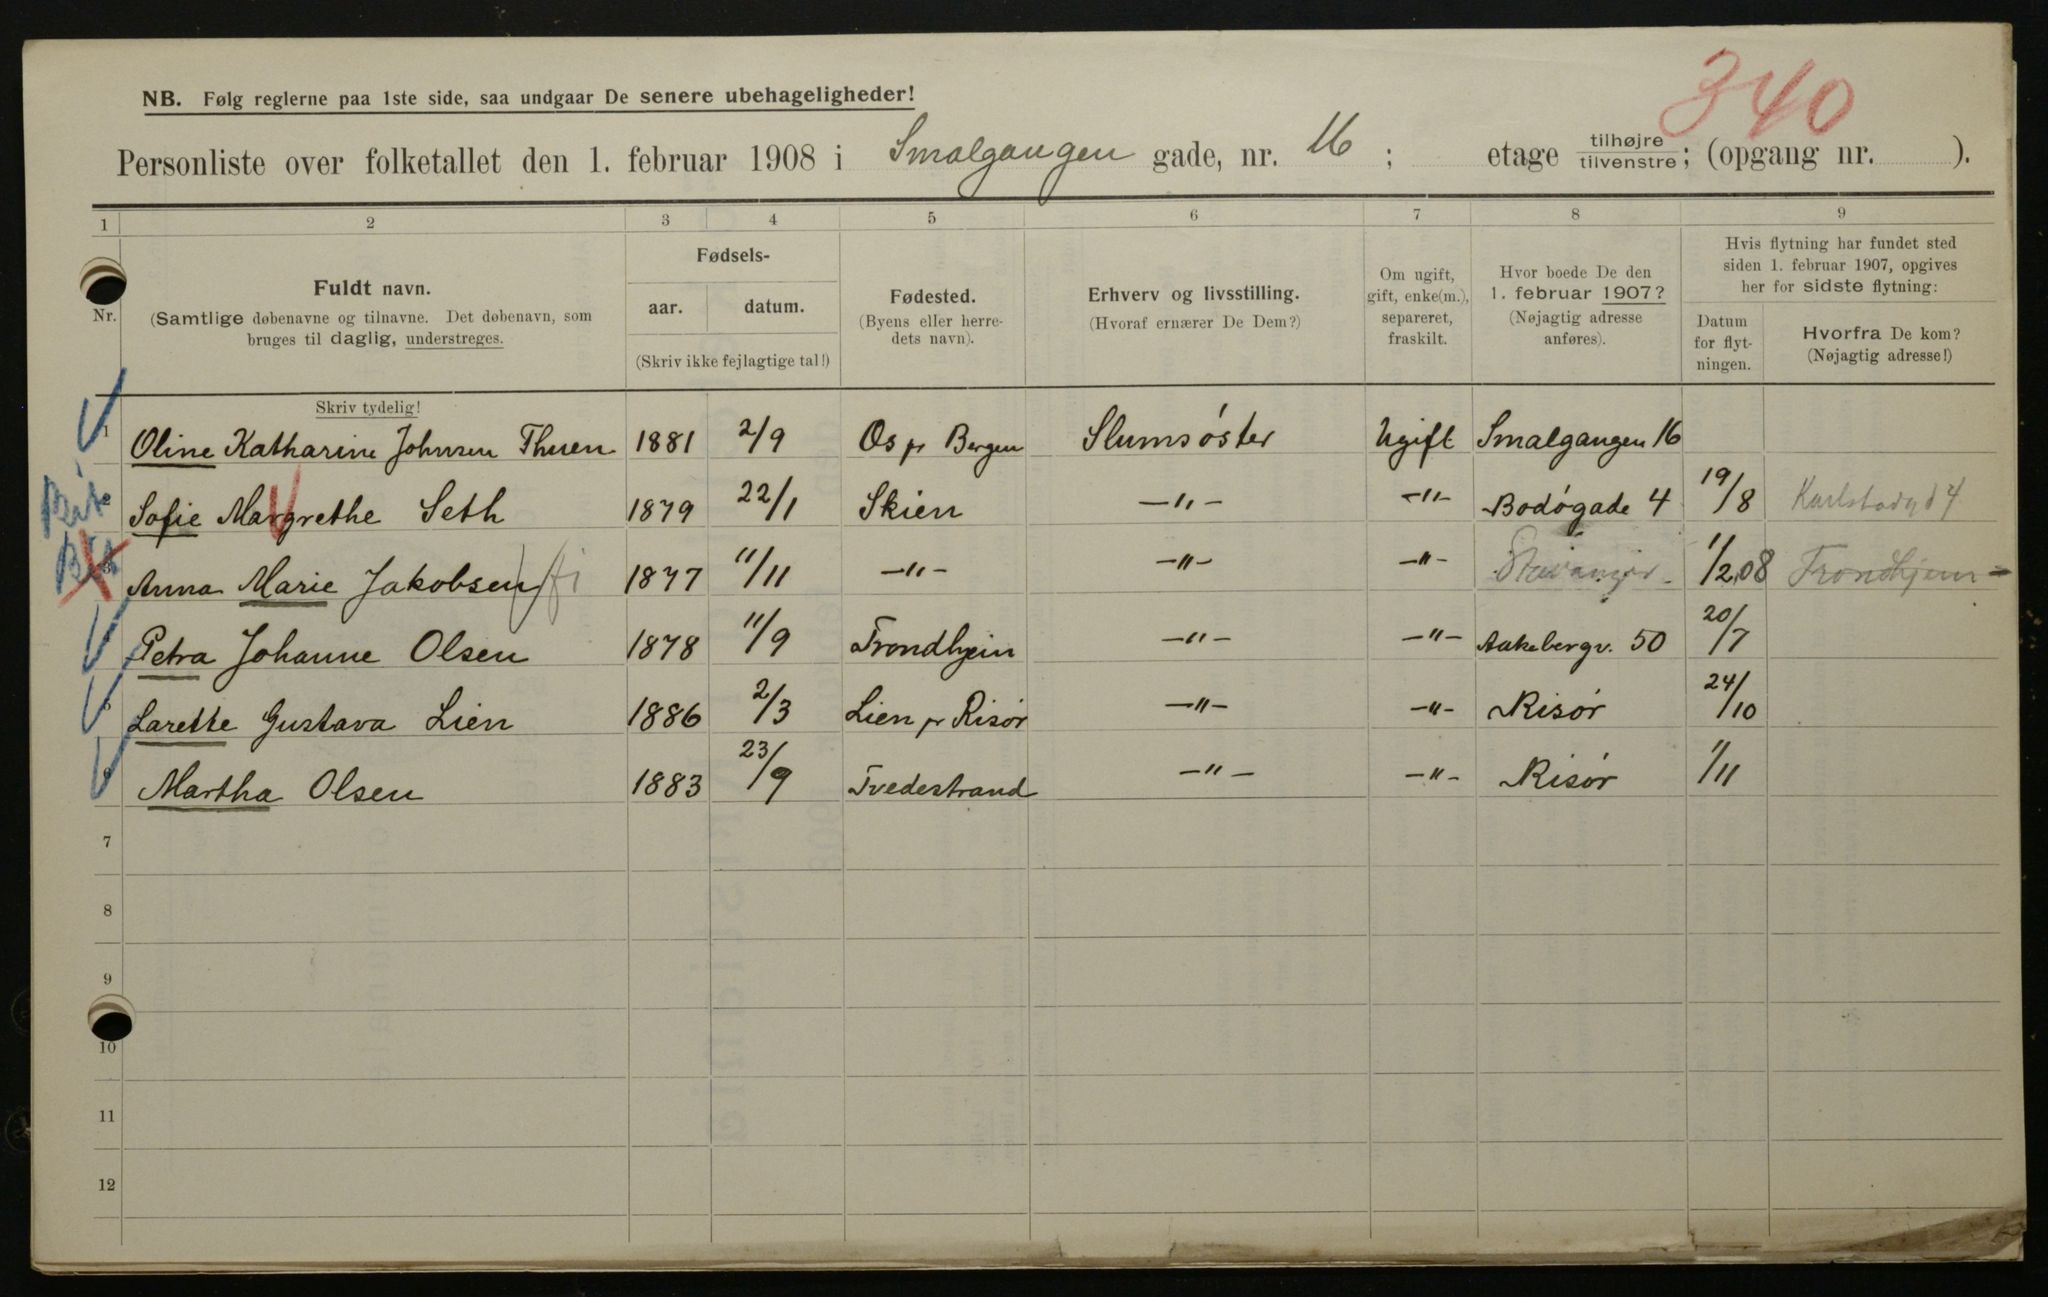 340
NB. Følg reglerne paa 1ste side, saa undgaar De senere ubehageligheder!
Personliste over folketallet den 1. februar 1908 i Smalgangen gade, nr. 16 ; etage tilhøjre tilvenstre ; (opgang nr. ).
1 2 3 4 5 6 7 8 9
Nr.
Fuldt navn.
(Samtlige døbenavne og tilnavne. Det døbenavn, som
bruges til daglig, understreges.
Skriv tydelig!
Fødsels-
aar. datum.
(Skriv ikke fejlagtige tal!)
Fødested.
(Byens eller herre-
dets navn).
Erhverv og livsstilling.
(Hvoraf ernærer De Dem?)
Om ugift,
gift, enke(m.),
separeret,
fraskilt.
Hvor boede De den
1. februar 1907?
(Nøjagtig adresse
anføres).
Hvis flytning har fundet sted
siden 1. februar 1907, opgives
her for sidste flytning:
Datum
for flyt-
ningen.
Hvorfra De kom?
(Nøjagtig adresse!)
1 Oline Katharine Johnsen Thuen 1881 2/9 Os pr Bergen Slumsøster Ugift Smalgangen 16
Sofie Margrethe Seth 1879 22/1 Skien —"— —"— Bodøgade 4 19/8 Karlstadgd 4
3 Anna Marie Jakobsen 1877 11/11 —"— —"— —"— Stavanger 1/2.08 Trondhjem
Petra Johanne Olsen 1878 11/9 Trondhjem —"— —"— Aakebergv. 50 20/7
5 Larette Gustava Lien 1886 2/3 Lien pr Risør —"— —"— Risør 24/10
6 Martha Olsen 1883 23/9 Tvedestrand —"— —"— Risør 1/11
7
8
9
10
11
12